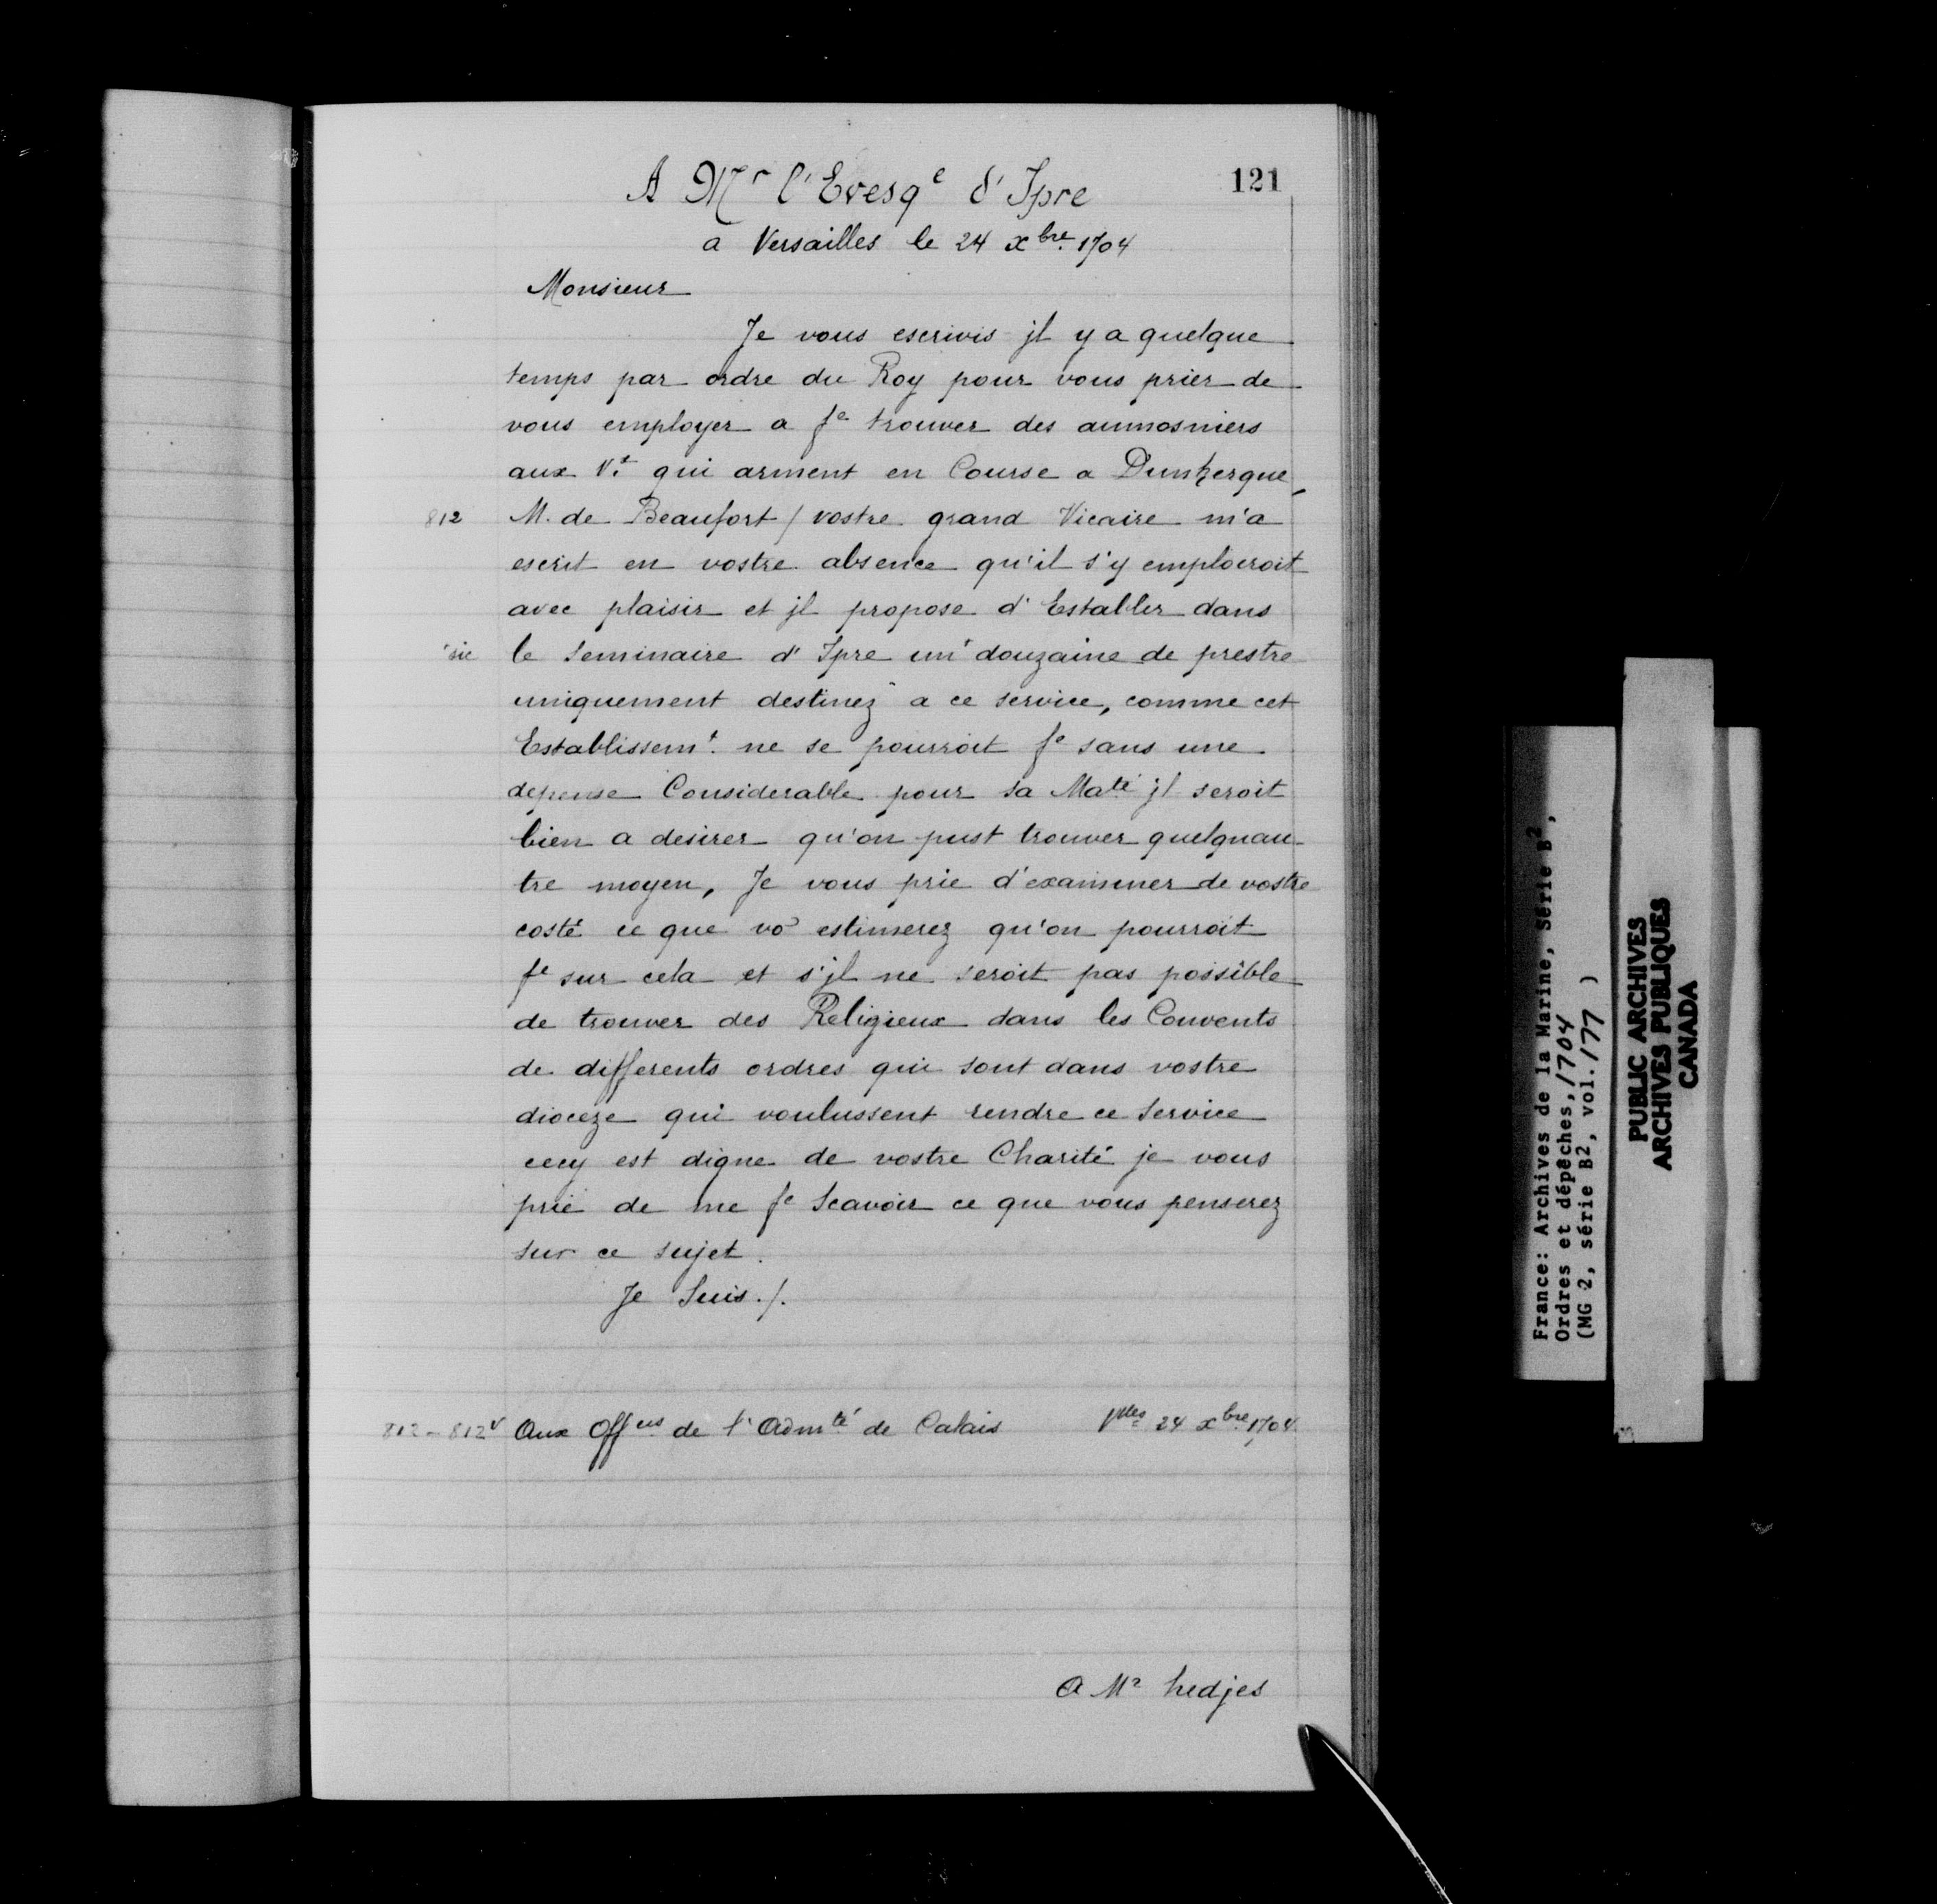 121
A Mr l'Evesqe d'Ipre
a Versailles le 24 xbre 1704
Monsieur
Je vous escrivis jl y a quelque
temps par ordre du Roy pour vous prier de
vous employer a fe trouver des aumosniers
aux Vx qui arment en Course a Dunkerque,
812 M. de Beaufort / vostre grand Vicaire m'a
escrit en vostre absence qu'il s'y emploeroit
avec plaisir et jl propose d'Establir dans
sic le Seminaire d'Ipre un' douzaine de prestre
uniquement destinez a ce service, comme cet
Establissemt. ne se pourroit fe sans une
depense Considerable pour sa Maté jl seroit
bien a desirer qu'on pust trouver quelquau-
tre moyen, Je vous prie d'examiner de vostre
costé ce que vo estimerez qu'on pourroit
fe sur cela et s'jl ne seroit pas possible
de trouver des Religieux dans les Convents
de differents ordres qui sont dans vostre
dioceze qui voulussent rendre ce Service
cecy est digne de vostre Charité je vous
prie de me fe Scavoir ce que vous penserez
sur ce sujet.
Je Suis./.
812-812v Aux Offers de l'Admté de Calais Vlles 24 xbre 1704
A Mr hedjes
France: Archives de la Marine, Série B2,
Ordres et dépêches, 1704
(MG 2, série B2, vol. 177 )
PUBLIC ARCHIVES
ARCHIVES PUBLIQUES
CANADA